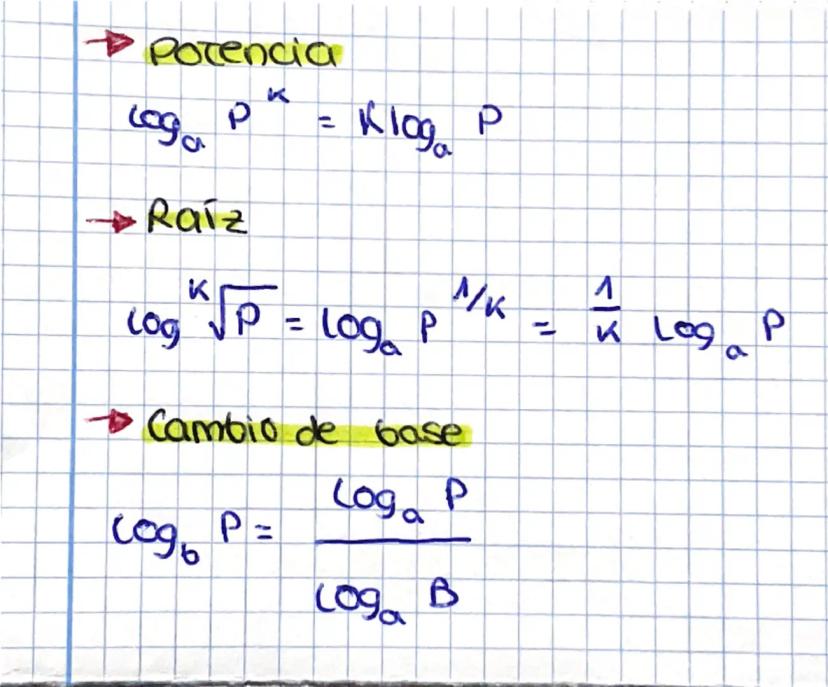 → Potencia
logₐ P^K = K logₐ P
→ Raíz
log ᴷ√P = logₐ P^1/K = 1/K Logₐ P
→ Cambio de base
Log_b P = Logₐ P / Logₐ B